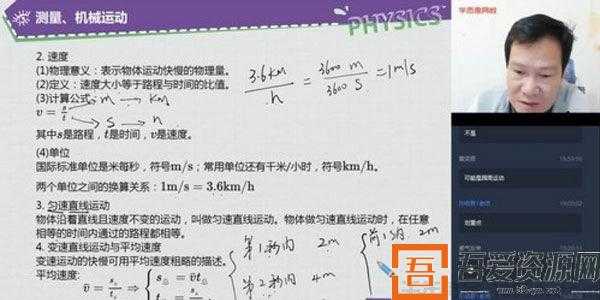 测量、机械运动
PHYSICS
学而思网校
2. 速度
(1)物理意义：表示物体运动快慢的物理量。
(2)定义：速度大小等于路程与时间的比值。
(3)计算公式 m → km
v = s/t
s → h
3.6km/h = 3600 m/3600 s = 1m/s
其中s是路程，t是时间，v是速度。
(4)单位
国际标准单位是米每秒，符号m/s；常用单位还有千米/小时，符号km/h。
两个单位之间的换算关系：1m/s = 3.6km/h
3. 匀速直线运动
物体沿着直线且速度不变的运动，叫做匀速直线运动。物体做匀速直线运动时，在任意
相等的时间内通过的路程都相等。
4. 变速直线运动与平均速度
变速运动的快慢可用平均速度粗略的描述。
平均速度：
第1秒内 2m
第2秒内 4m
前1s内 2m
不是
可能是周周运动
划重点
吾爱资源网